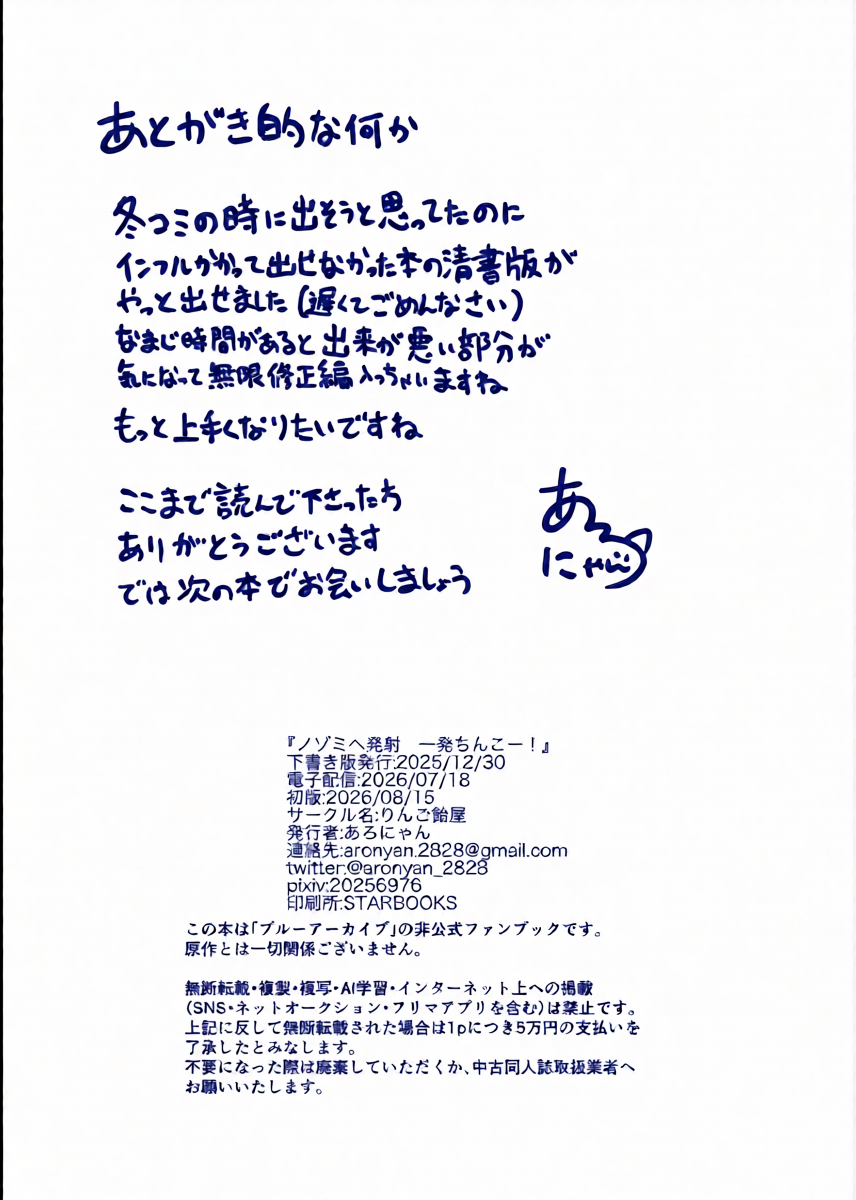 あとがき的な何か
冬コミの時に出そうと思ってたのに
インフルかかって出せなかった本の清書版が
やっと出せました(遅くてごめんなさい)
なまじ時間があると出来が悪い部分が
気になって無限修正編入っちゃいますね
もっと上手くなりたいですね
ここまで読んで下さったたち
ありがとうございます
では次の本でお会いしましょう
あろ
にゃん
『ノゾミへ発射　一発ちんこー!』
下書き版発行:2025/12/30
電子配信:2026/07/18
初版:2026/08/15
サークル名:りんご飴屋
発行者:あろにゃん
連絡先:aronyan.2828@gmail.com
twitter:@aronyan_2828
pixiv:20256976
印刷所:STARBOOKS
この本は「ブルーアーカイブ」の非公式ファンブックです。
原作とは一切関係ございません。
無断転載・複製・複写・AI学習・インターネット上への掲載
(SNS・ネットオークション・フリマアプリを含む)は禁止です。
上記に反して無断転載された場合は1pにつき5万円の支払いを
了承したとみなします。
不要になった際は廃棄していただくか、中古同人誌取扱業者へ
お願いいたします。